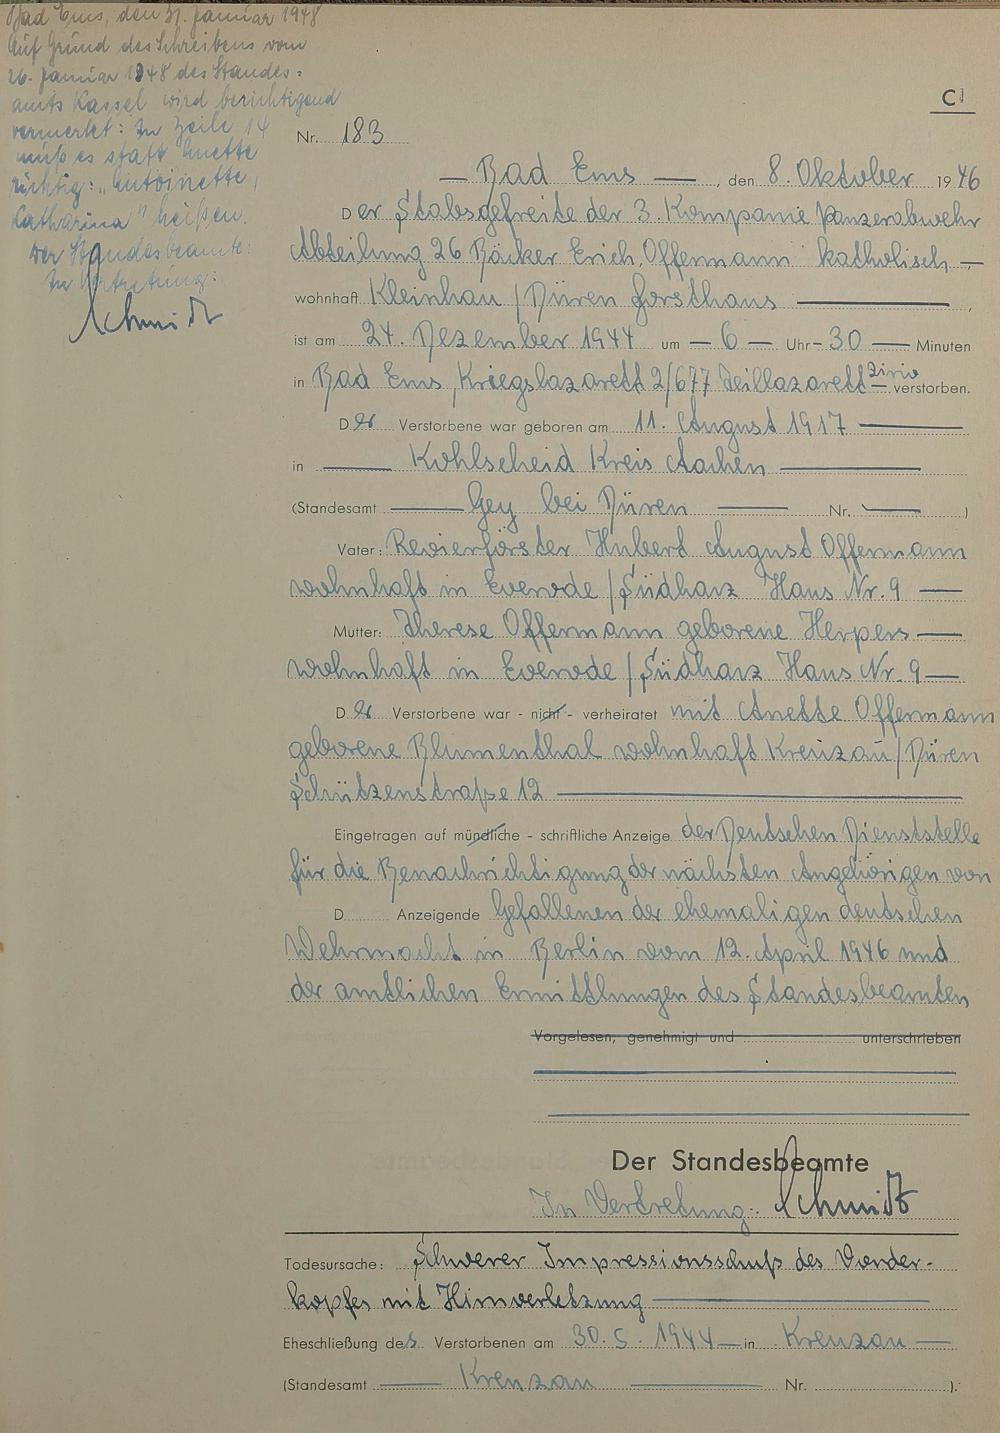 Bad Ems, den 31. Januar 1948
Auf Grund des Schreibens vom
26. Januar 1948 des Standes-
amts Kassel wird berichtigend
vermerkt: In Zeile 14
muß es statt Anette
richtig: „Antoinette,
Katharina" heißen.
Der Standesbeamte:
In Vertretung:
Schmidt
C
Nr. 183
— Bad Ems —, den 8. Oktober 1946
Der Stabsgefreite der 3. Kompanie Panzerabwehr
Abteilung 26 Bäcker Erich Offermann katholisch —
wohnhaft Kleinhau / Düren Forsthaus —,
ist am 24. Dezember 1944 um — 6 — Uhr — 30 — Minuten
in Bad Ems, Kriegslazarett 2/677 Teillazarett — verstorben.
Der Verstorbene war geboren am 11. August 1917 —
in — Kohlscheid Kreis Aachen —
(Standesamt — Gey bei Düren — Nr. — )
Vater: Revierförster Hubert August Offermann
wohnhaft in Everode / Südharz Haus Nr. 9 —
Mutter: Therese Offermann geborene Herpers —
wohnhaft in Everode / Südharz Haus Nr. 9 —
Der Verstorbene war - nicht - verheiratet mit Anette Offermann
geborene Blumenthal wohnhaft Kreuzau / Düren
Schützenstraße 12 —
Eingetragen auf mündliche - schriftliche Anzeige der Deutschen Dienststelle
für die Benachrichtigung der nächsten Angehörigen von
D Anzeigende Gefallenen der ehemaligen deutschen
Wehrmacht in Berlin vom 12. April 1946 und
der amtlichen Ermittlungen des Standesbeamten
Vorgelesen, genehmigt und unterschrieben
Der Standesbeamte
In Vertretung: Schmidt
Todesursache: Schwerer Impressionsschuß des Vorder-
kopfes mit Hirnverletzung —
Eheschließung des Verstorbenen am 30. 5. 1944 — in Kreuzau —
(Standesamt — Kreuzau — Nr. ).